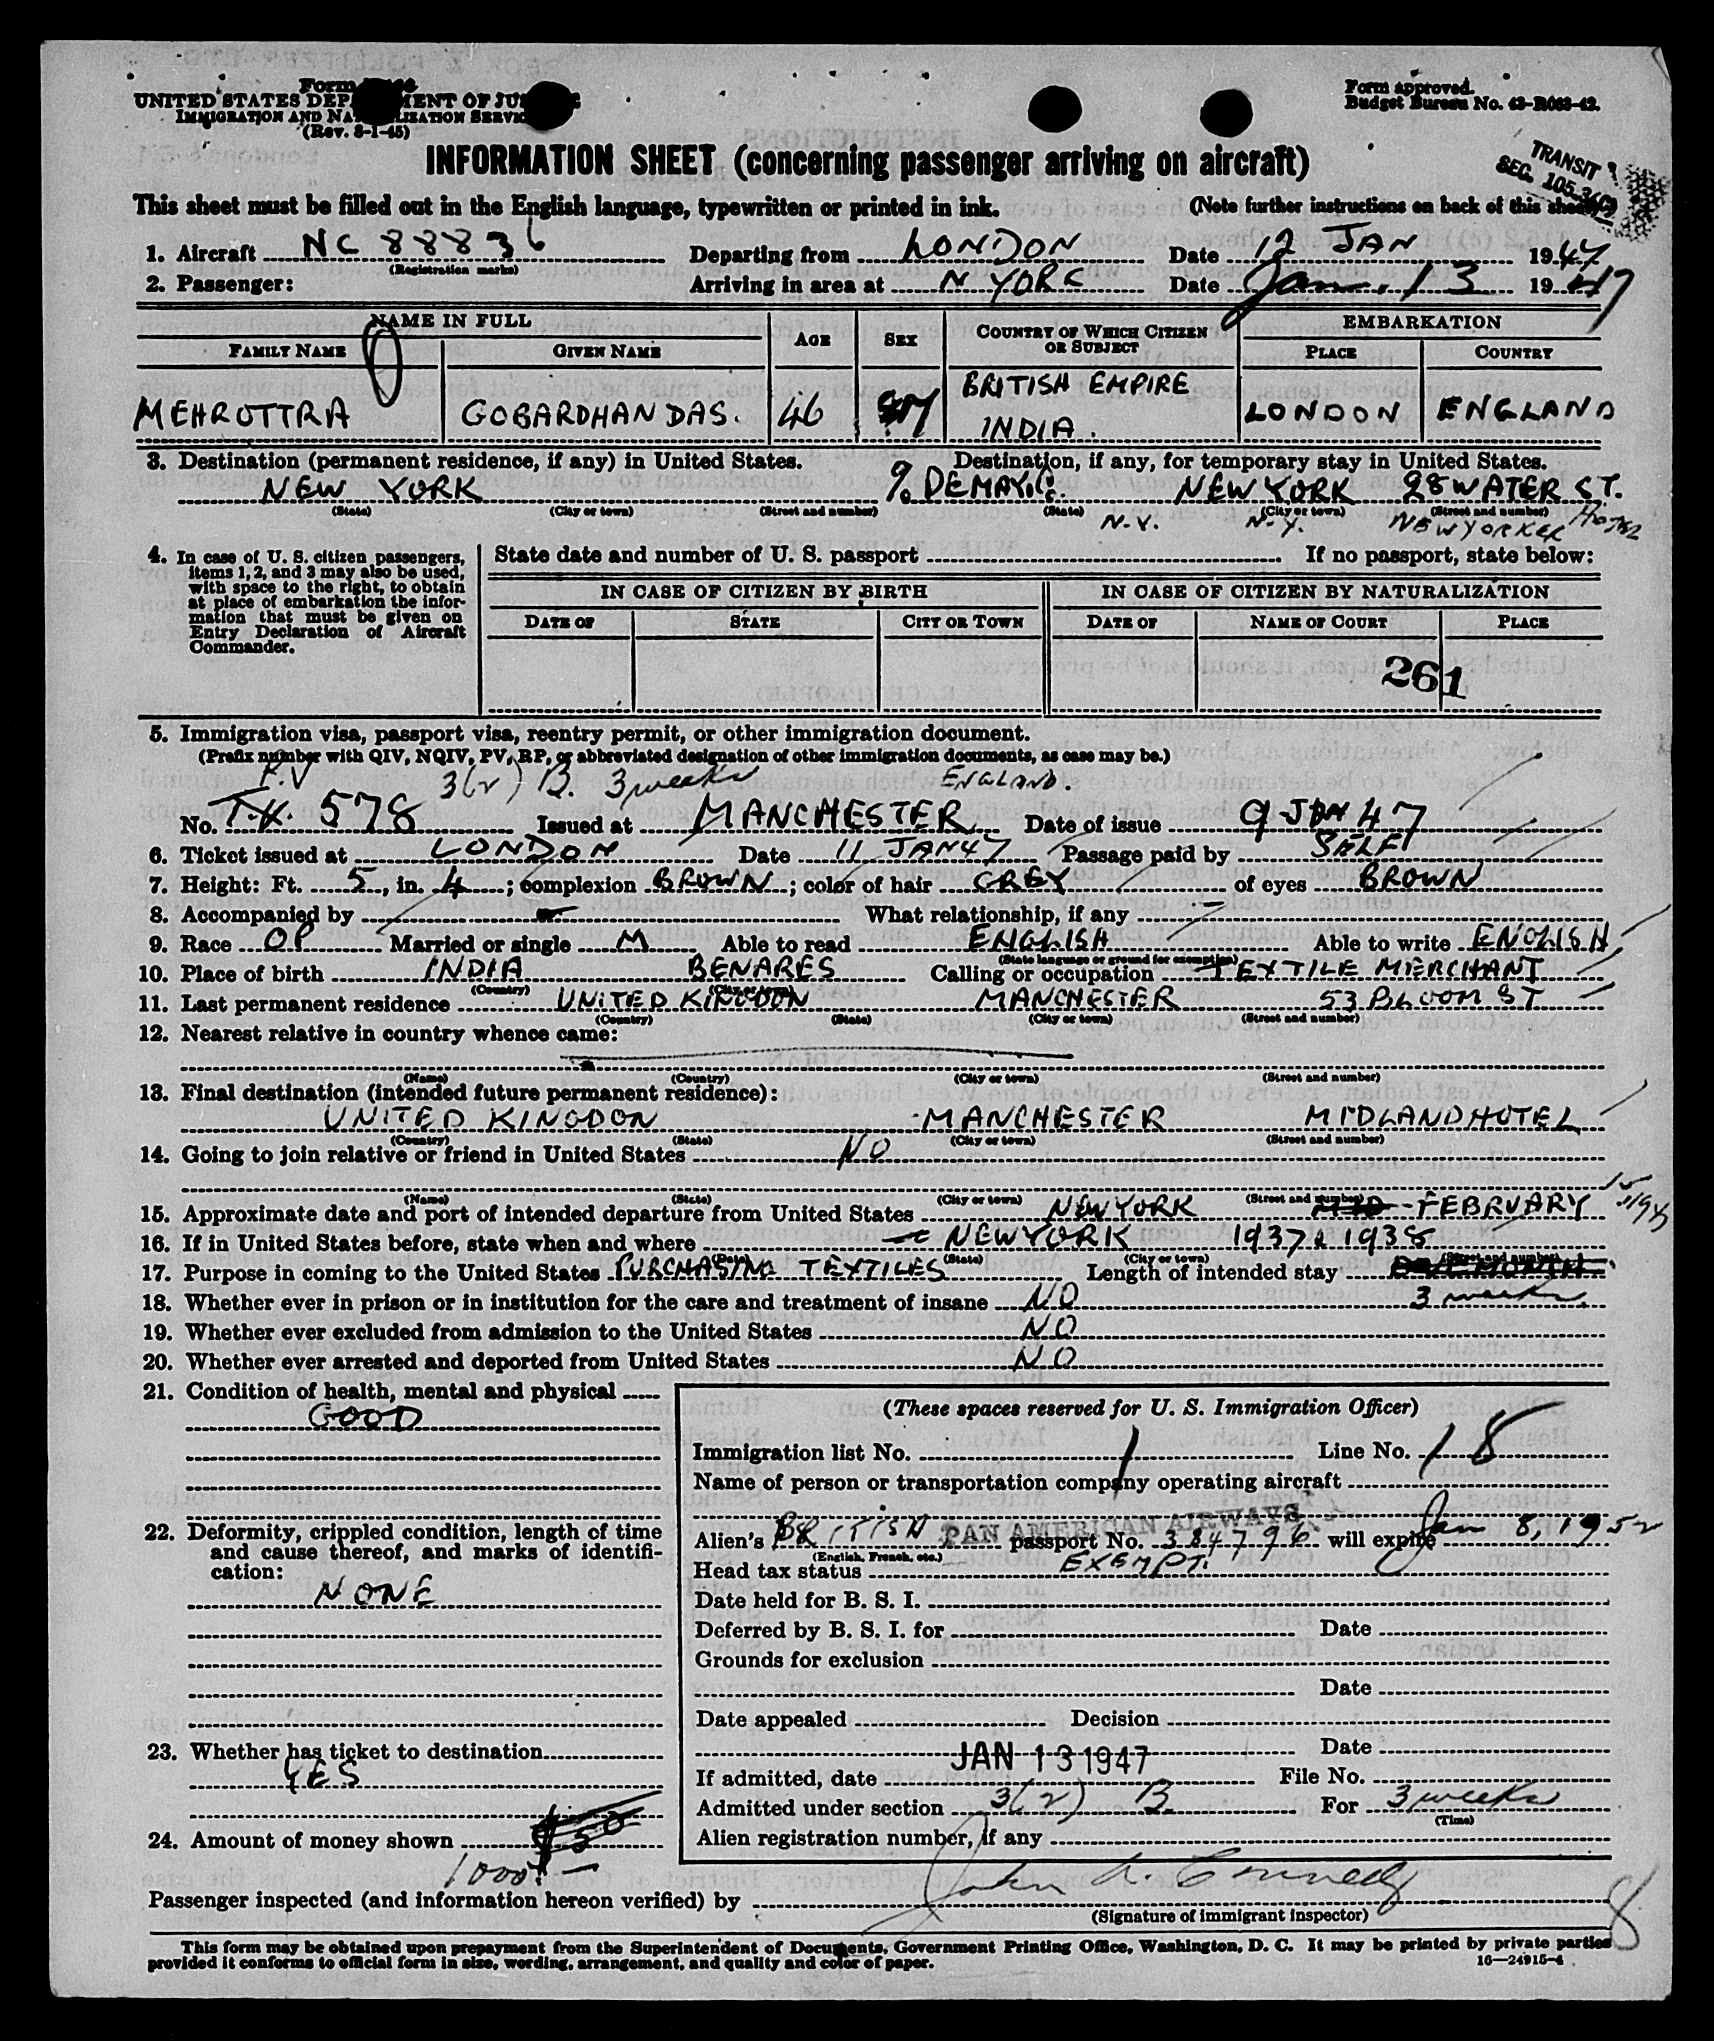 Form
UNITED STATES DEPARTMENT OF JUSTICE
IMMIGRATION AND NATURALIZATION SERVICE
(Rev. 8-1-45)
Form approved.
Budget Bureau No. 43-R063-42.
TRANSIT
SEC. 105.3(6)
INFORMATION SHEET (concerning passenger arriving on aircraft)
This sheet must be filled out in the English language, typewritten or printed in ink. (Note further instructions on back of this sheet)
1. Aircraft NC 88836 Departing from LONDON Date 12 JAN 1947
(Registration marks)
2. Passenger: Arriving in area at N YORK Date Jan. 13 1947
NAME IN FULL AGE SEX COUNTRY OF WHICH CITIZEN OR SUBJECT EMBARKATION
FAMILY NAME GIVEN NAME PLACE COUNTRY
MEHROTTRA GOBARDHAN DAS. 46 M BRITISH EMPIRE INDIA. LONDON ENGLAND
3. Destination (permanent residence, if any) in United States. Destination, if any, for temporary stay in United States.
NEW YORK % DEMAY.C. NEW YORK 98 WATER ST.
(State) (City or town) (Street and number) (State) (City or town) (Street and number)
N.Y. N.Y. NEWYORKER HOTEL
4. In case of U. S. citizen passengers, items 1, 2, and 3 may also be used, with space to the right, to obtain at place of embarkation the information that must be given on Entry Declaration of Aircraft Commander.
State date and number of U. S. passport If no passport, state below:
IN CASE OF CITIZEN BY BIRTH IN CASE OF CITIZEN BY NATURALIZATION
DATE OF STATE CITY OR TOWN DATE OF NAME OF COURT PLACE
261
5. Immigration visa, passport visa, reentry permit, or other immigration document.
(Prefix number with QIV, NQIV, PV, RP, or abbreviated designation of other immigration documents, as case may be.)
P.V 3(2) B. 3 weeks ENGLAND.
No. T.V. 578 Issued at MANCHESTER Date of issue 9 JAN 47
6. Ticket issued at LONDON Date 11 JAN 47 Passage paid by SELF
7. Height: Ft. 5, in. 4; complexion BROWN; color of hair GREY of eyes BROWN
8. Accompanied by What relationship, if any —
9. Race OP Married or single M Able to read ENGLISH Able to write ENGLISH
(State language or ground for exemption)
10. Place of birth INDIA BENARES Calling or occupation TEXTILE MERCHANT
(Country) (City or town)
11. Last permanent residence UNITED KINGDON MANCHESTER 53 BLOOM ST
(Country) (State) (City or town) (Street and number)
12. Nearest relative in country whence came:
(Name) (Country) (City or town) (Street and number)
13. Final destination (intended future permanent residence):
UNITED KINGDON MANCHESTER MIDLAND HOTEL
(Country) (State) (City or town) (Street and number)
14. Going to join relative or friend in United States NO
(Name) (State) (City or town) (Street and number)
15. Approximate date and port of intended departure from United States NEW YORK MID - FEBRUARY
16. If in United States before, state when and where NEW YORK 1937 & 1938
(Date) (State) (City or town) (Street and number)
17. Purpose in coming to the United States PURCHASING TEXTILES Length of intended stay ONE MONTH
18. Whether ever in prison or in institution for the care and treatment of insane NO 3 weeks.
19. Whether ever excluded from admission to the United States NO
20. Whether ever arrested and deported from United States NO
21. Condition of health, mental and physical
GOOD
22. Deformity, crippled condition, length of time and cause thereof, and marks of identification:
NONE
23. Whether has ticket to destination
YES
24. Amount of money shown $50
1000
(These spaces reserved for U. S. Immigration Officer)
Immigration list No. 1 Line No. 18
Name of person or transportation company operating aircraft
PAN AMERICAN AIRWAYS
Alien's BRITISH passport No. 384796 will expire Jan 8, 1952
(English, French, etc.)
Head tax status EXEMPT.
Date held for B. S. I.
Deferred by B. S. I. for Date
Grounds for exclusion
Date
Date appealed Decision
Date
If admitted, date JAN 13 1947 File No.
Admitted under section 3(2) B. For 3 weeks
(Time)
Alien registration number, if any
Passenger inspected (and information hereon verified) by John A. Connelly
(Signature of immigrant inspector)
8
This form may be obtained upon prepayment from the Superintendent of Documents, Government Printing Office, Washington, D. C. It may be printed by private parties
provided it conforms to official form in size, wording, arrangement, and quality and color of paper. 16—24915-4